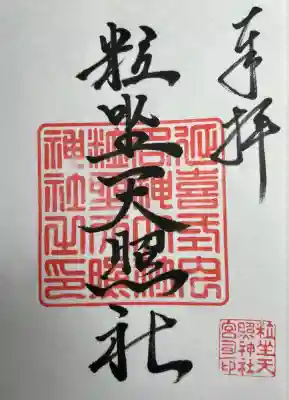 奉拝
粒坐天照社
延喜式内
名神
粒坐天照
神社之印
粒坐天
照神社
宮司印